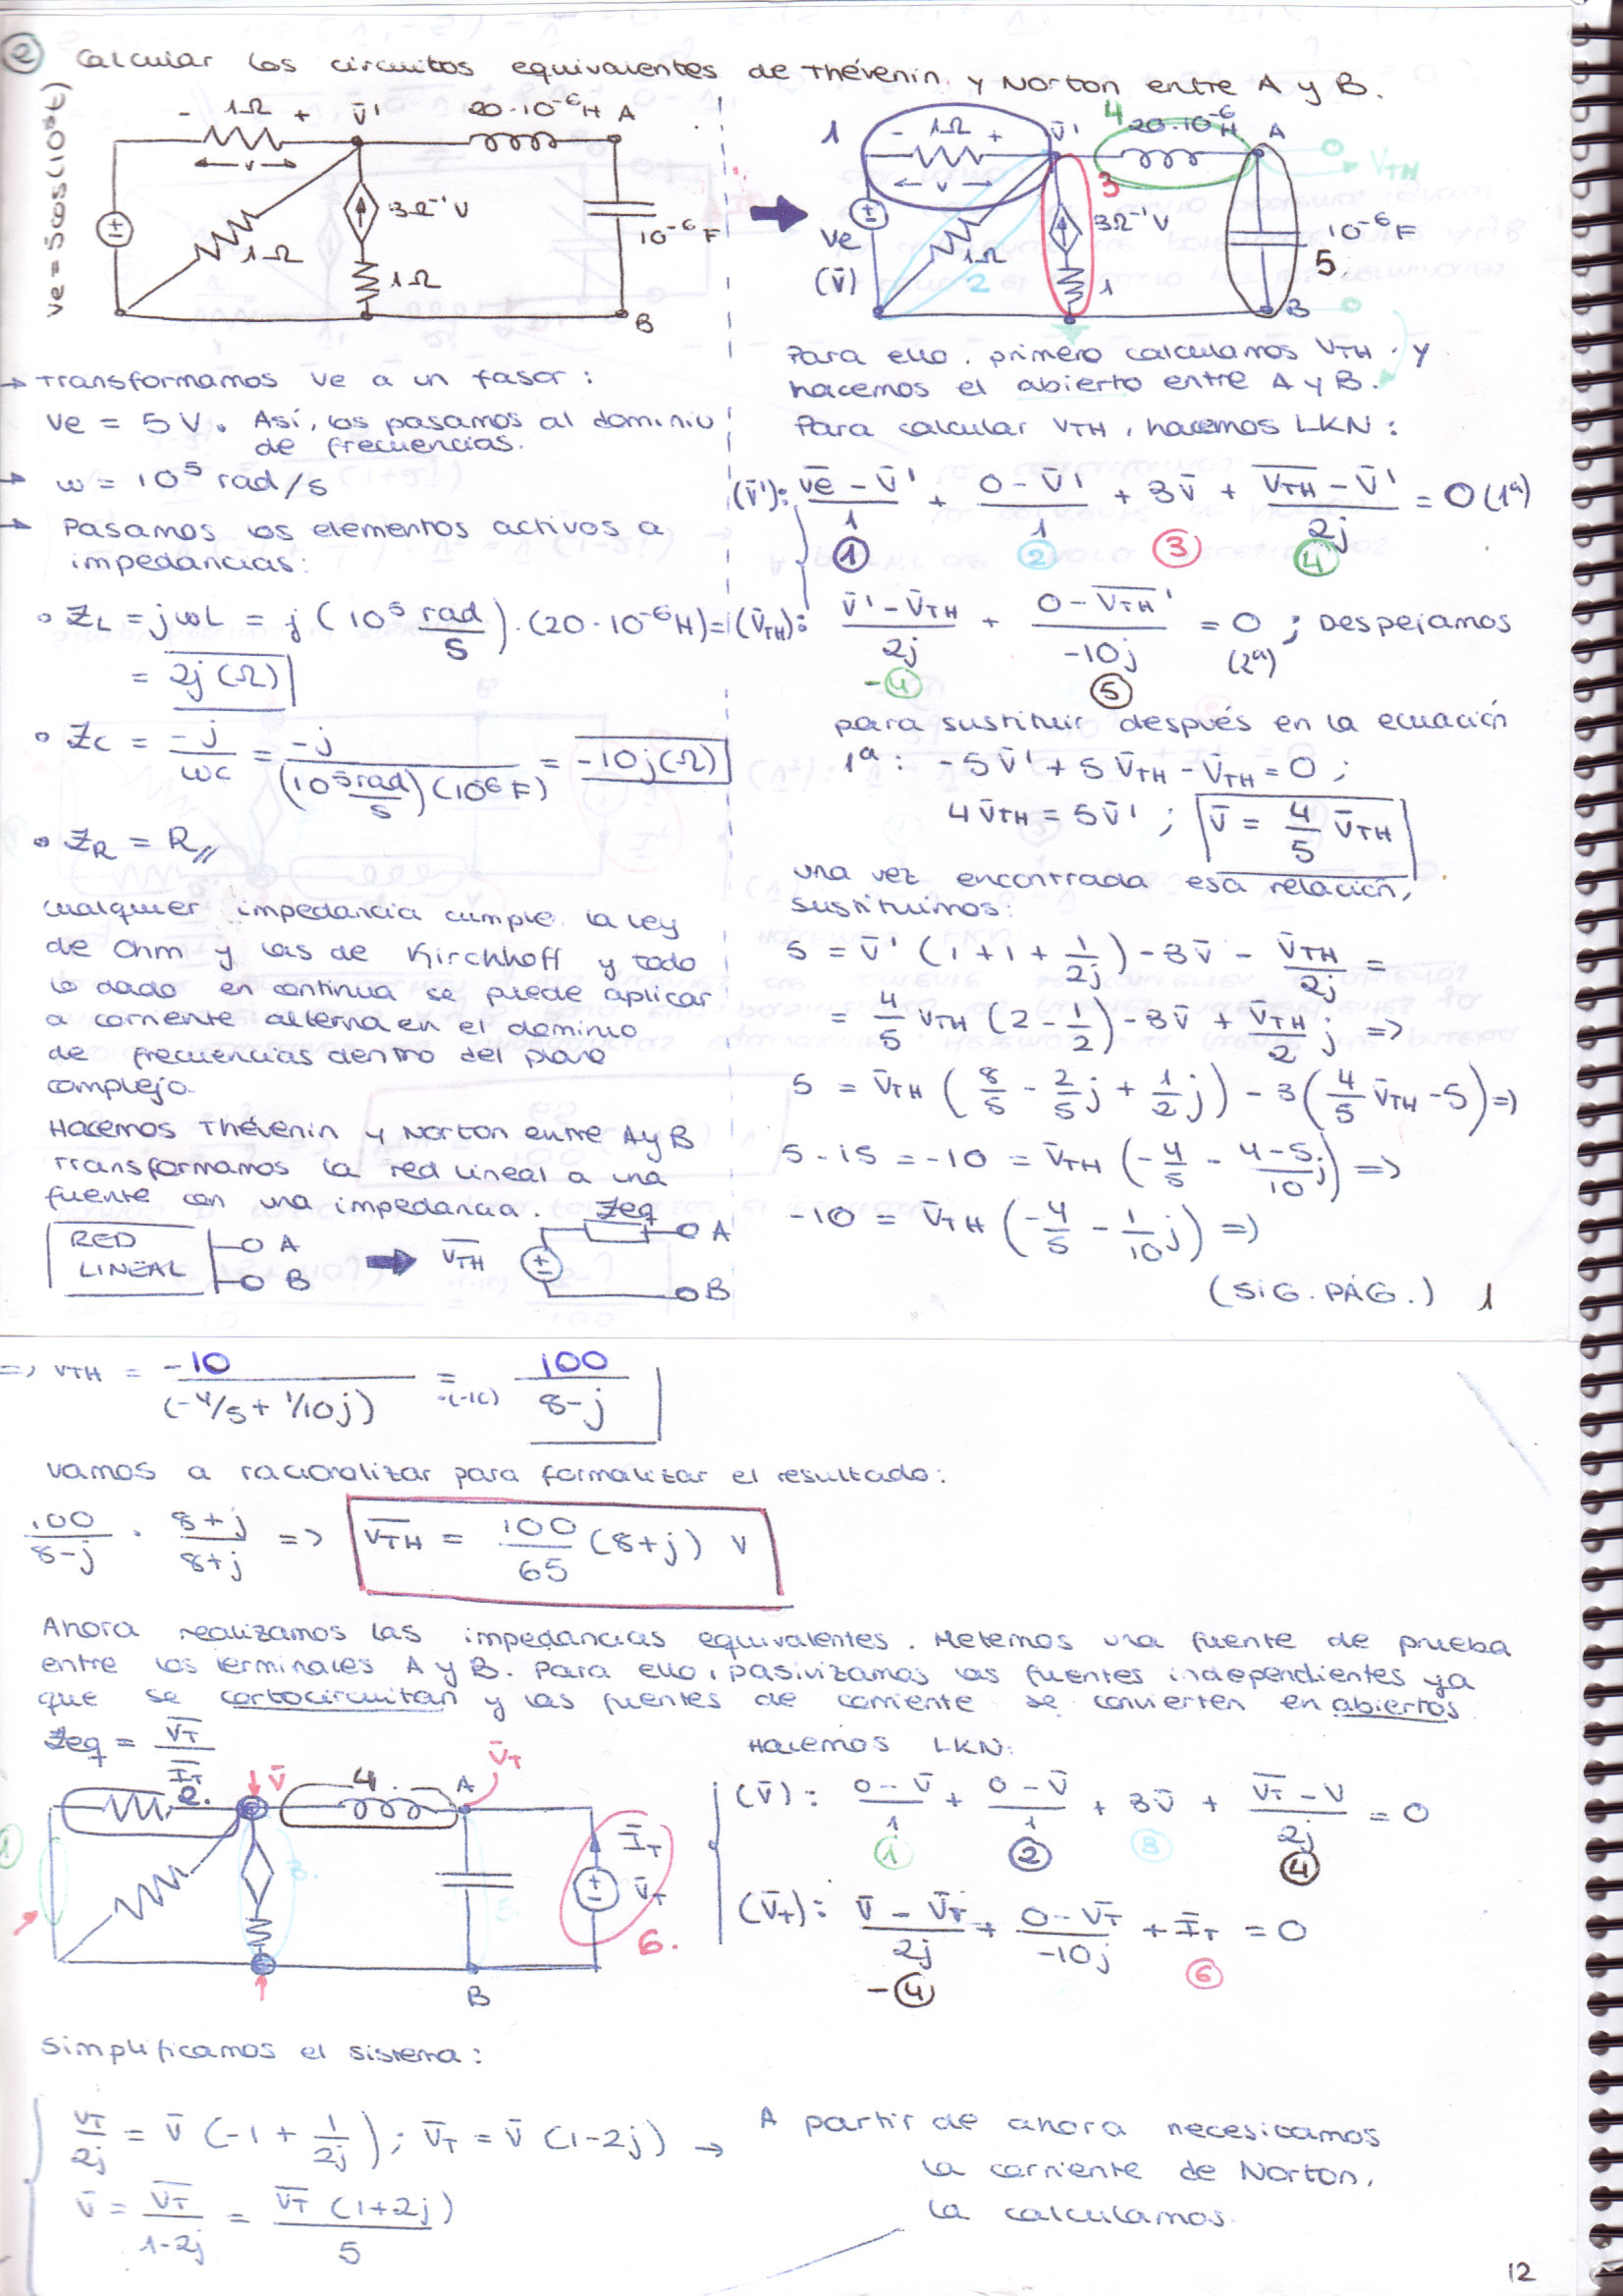 ② Calcular los circuitos equivalentes de Thévenin y Norton entre A y B.
ve = 5cos(10⁵t)
- 1Ω + V̄' 20·10⁻⁶H A
← v →
±
1Ω
3Ω⁻¹V
1Ω
10⁻⁶F
B
→ Transformamos ve a un fasor:
Ve = 5V. Así, los pasamos al dominio
de frecuencias.
→ ω = 10⁵ rad/s
→ Pasamos los elementos activos a
impedancias:
∘ ZL = jωL = j (10⁵ rad/s)·(20·10⁻⁶H) =
= 2j (Ω)
∘ Zc = -j/ωc = -j/((10⁵rad/s)(10⁶F)) = -10j(Ω)
∘ ZR = R//
Cualquier impedancia cumple la ley
de Ohm y las de Kirchhoff y todo
lo dado en continua se puede aplicar
a corriente alterna en el dominio
de frecuencias dentro del plano
complejo.
Hacemos Thévenin y Norton entre A y B
Transformamos la red lineal a una
fuente con una impedancia.
RED
LINEAL
A
B
→ V̄TH ± Zeq A
B
1 - 1Ω + V̄' 4 20·10⁻⁶H A VTH
← v →
±
Ve
(v̄)
1Ω
2
3
3Ω⁻¹V
1
10⁻⁶F
5
B
Para ello, primero calculamos VTH y
hacemos el abierto entre A y B.
Para calcular VTH, hacemos LKN:
(V̄'): (v̄e - V̄')/1 + (0 - V̄')/1 + 3v̄ + (V̄TH - V̄')/2j = 0 (1ª)
① ② ③ ④
(V̄TH): (V̄' - V̄TH)/2j + (0 - V̄TH')/-10j = 0 ; Despejamos
-④ ⑤ (2ª)
para sustituir después en la ecuación
1ª: -5V̄' + 5V̄TH - V̄TH = 0 ;
4V̄TH = 5V̄' ; V̄ = 4/5 V̄TH
una vez encontrada esa relación,
sustituimos:
5 = V̄' (1 + 1 + 1/2j) - 3v̄ - V̄TH/2j =
= 4/5 VTH (2 - 1/2) - 3v̄ + V̄TH/2 j =>
5 = V̄TH (8/5 - 2/5 j + 1/2 j) - 3(4/5 V̄TH - 5) =>
5 - 15 = -10 = V̄TH (-4/5 - (4-5)/10 j) =>
-10 = V̄TH (-4/5 - 1/10 j) =>
(SIG. PÁG.) 1
=> VTH = -10/(-4/5 + 1/10j) = ·(-10) 100/(8-j)
Vamos a racionalizar para formalizar el resultado:
100/(8-j) · (8+j)/(8+j) => V̄TH = 100/65 (8+j) V
Ahora realizamos las impedancias equivalentes. Metemos una fuente de prueba
entre los terminales A y B. Para ello, pasivizamos las fuentes independientes ya
que se cortocircuitan y las fuentes de corriente se convierten en abiertos.
Zeq = V̄T/ĪT
1 2. V̄ 4. A V̄T
3.
5.
ĪT
± V̄T
6.
B
Hacemos LKN:
(V̄): (0 - V̄)/1 + (0 - V̄)/1 + 3V̄ + (V̄T - V)/2j = 0
① ② ③ ④
(V̄T): (V̄ - V̄T)/2j + (0 - V̄T)/-10j + ĪT = 0
-④ ⑥
Simplificamos el sistema:
VT/2j = V̄ (-1 + 1/2j) ; V̄T = V̄ (1-2j) →
V̄ = V̄T/(1-2j) = V̄T (1+2j)/5
A partir de ahora necesitamos
la corriente de Norton,
la calculamos.
12